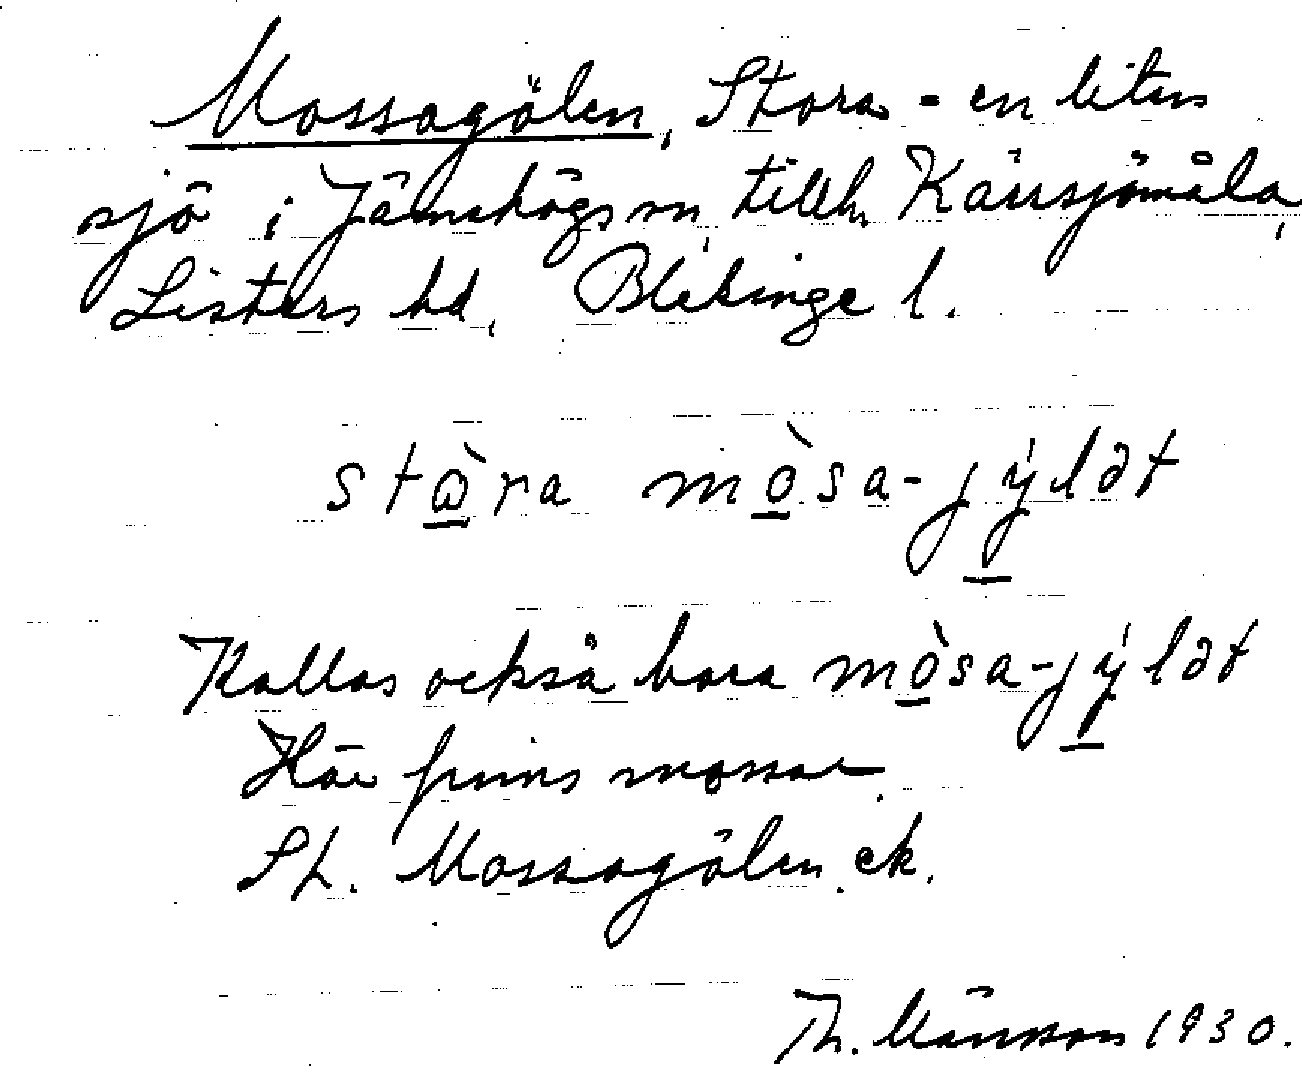 Mossagölen, Stora - en liten
sjö i Jämshögs sn, tillh. Kärrsjömåla,
Listers hd, Blekinge l.
stὼ̱ra mò̱sa-jý̱lət
Kallas också bara mò̱sa-jý̱lət
Här finns mossar.
St. Mossagölen ek.
Th. Månsson 1930.